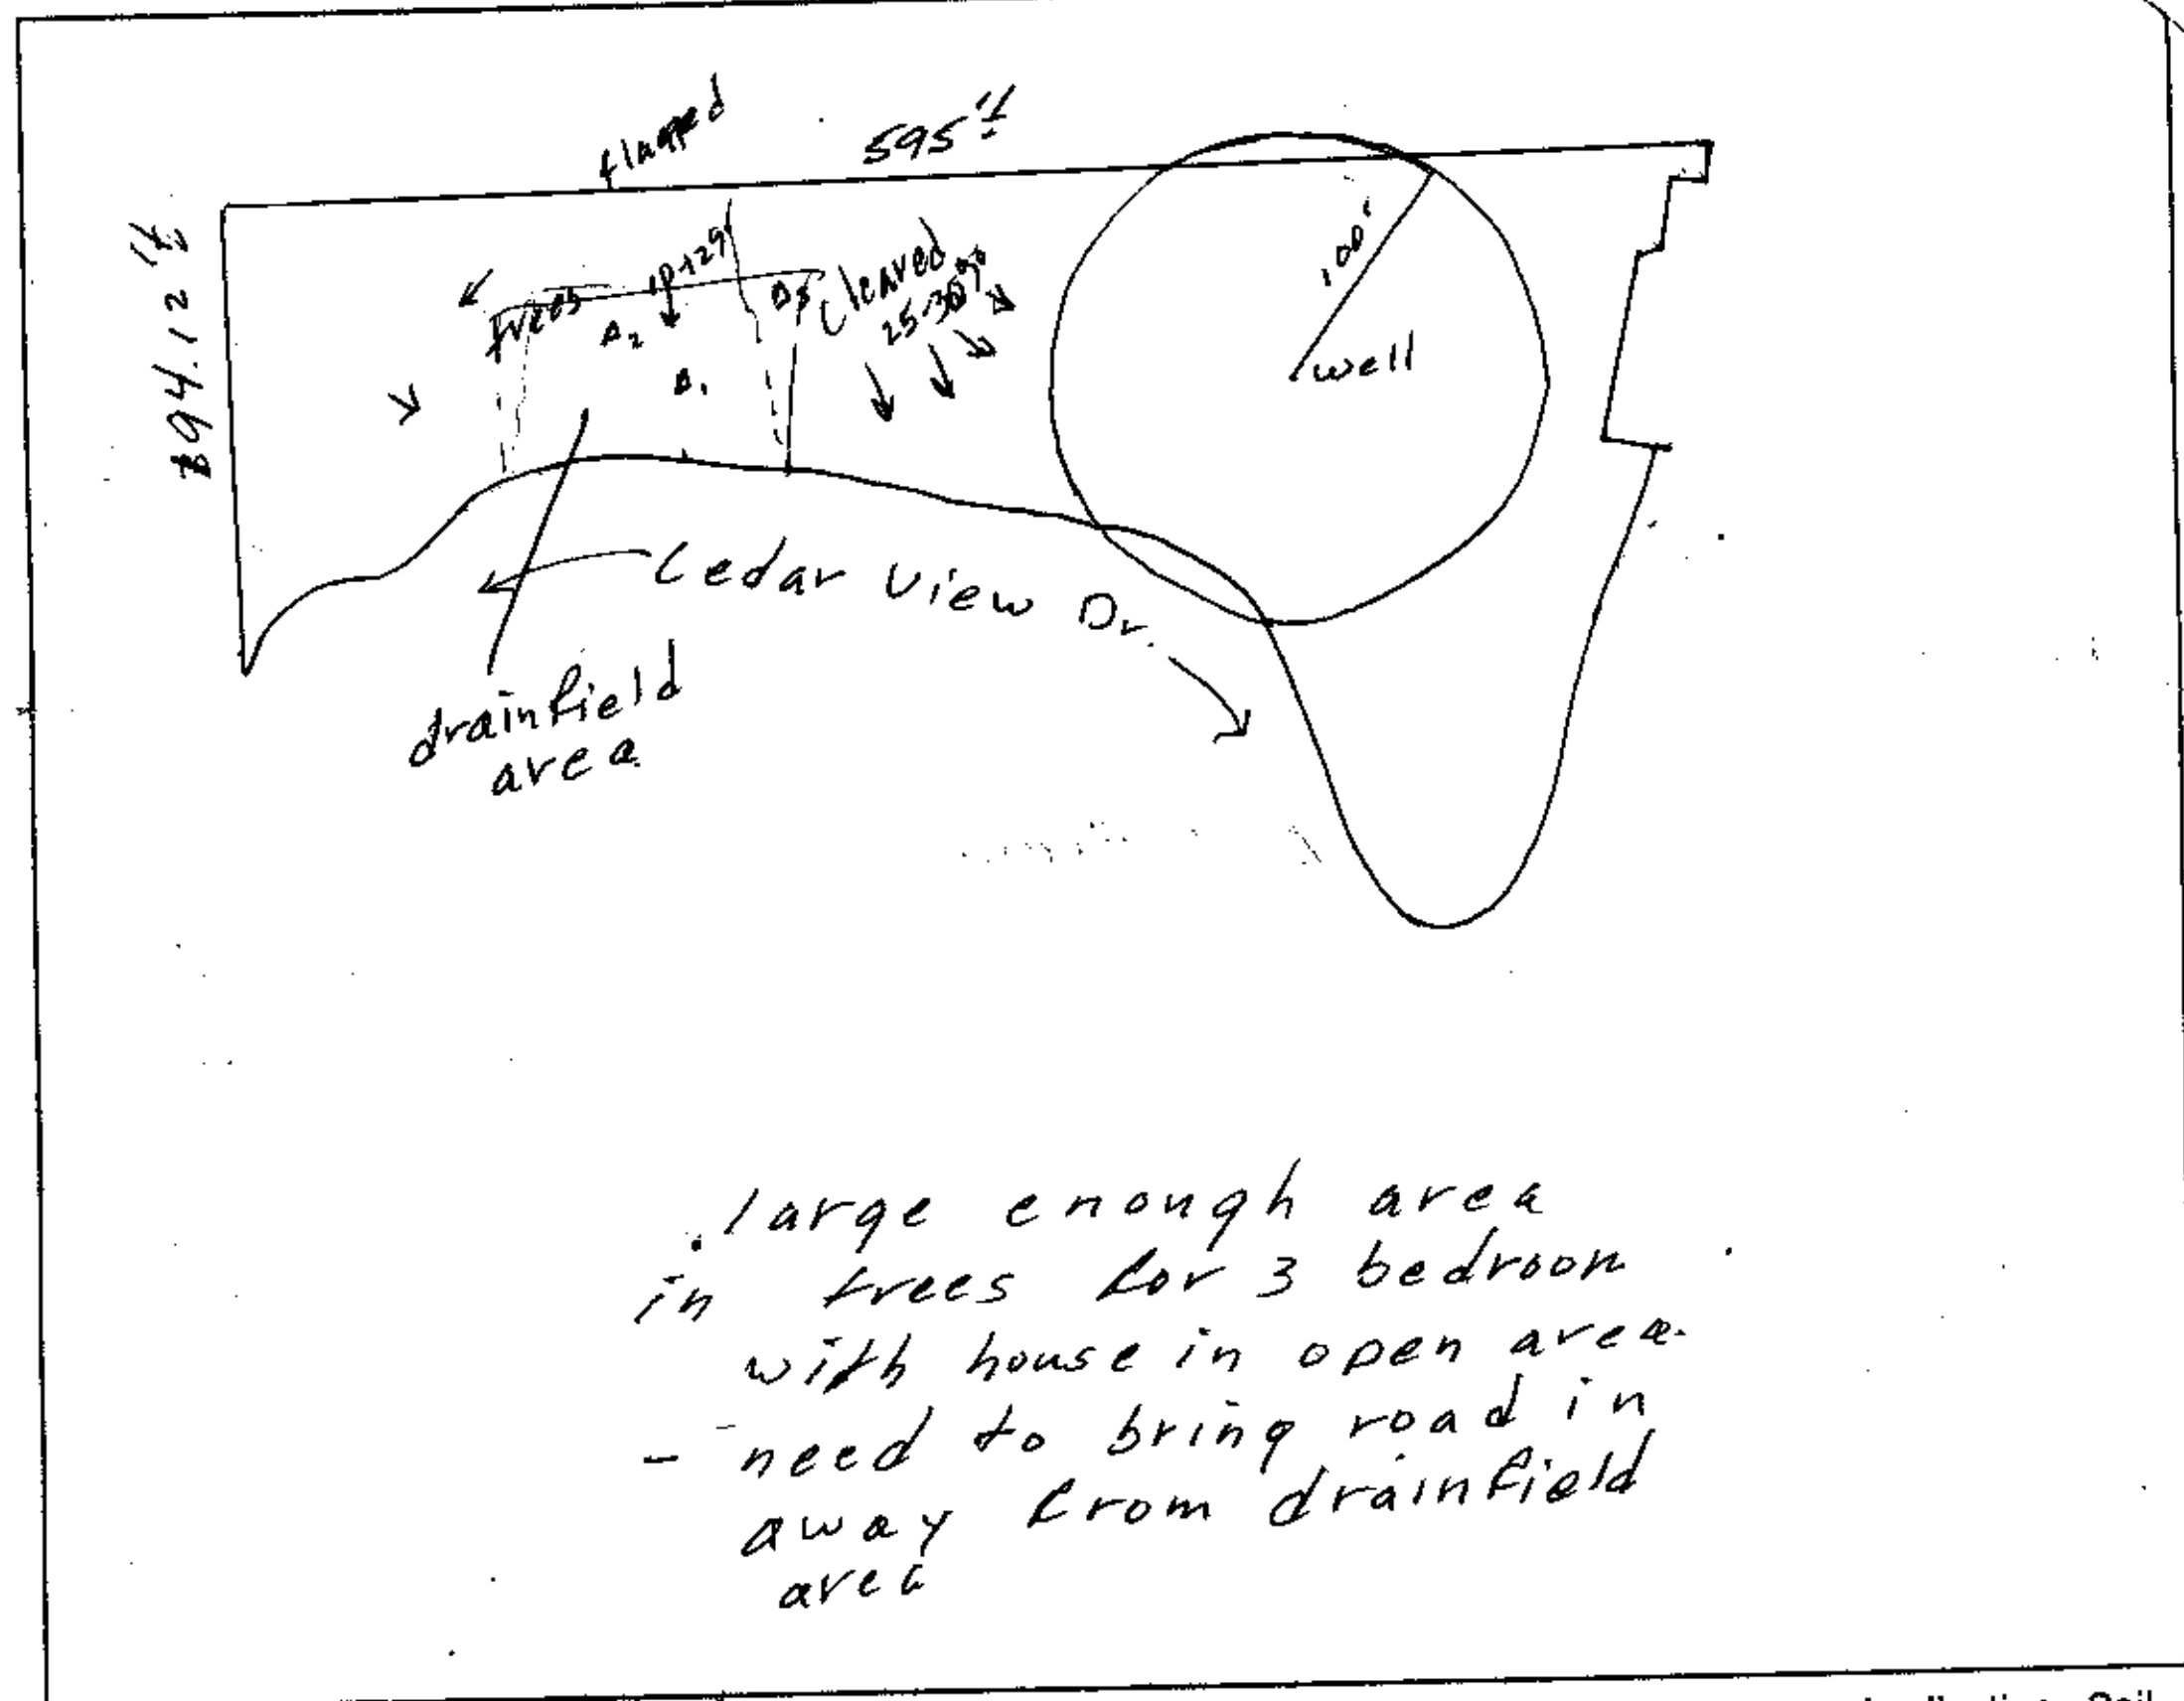 flagged
595'±
trees
Δ2
Δ1
Δ5
Cleared
25-30%
100'
well
Cedar View Dr.
drainfield
area
large enough area
in trees for 3 bedroom
with house in open area
- need to bring road in
away from drainfield
area